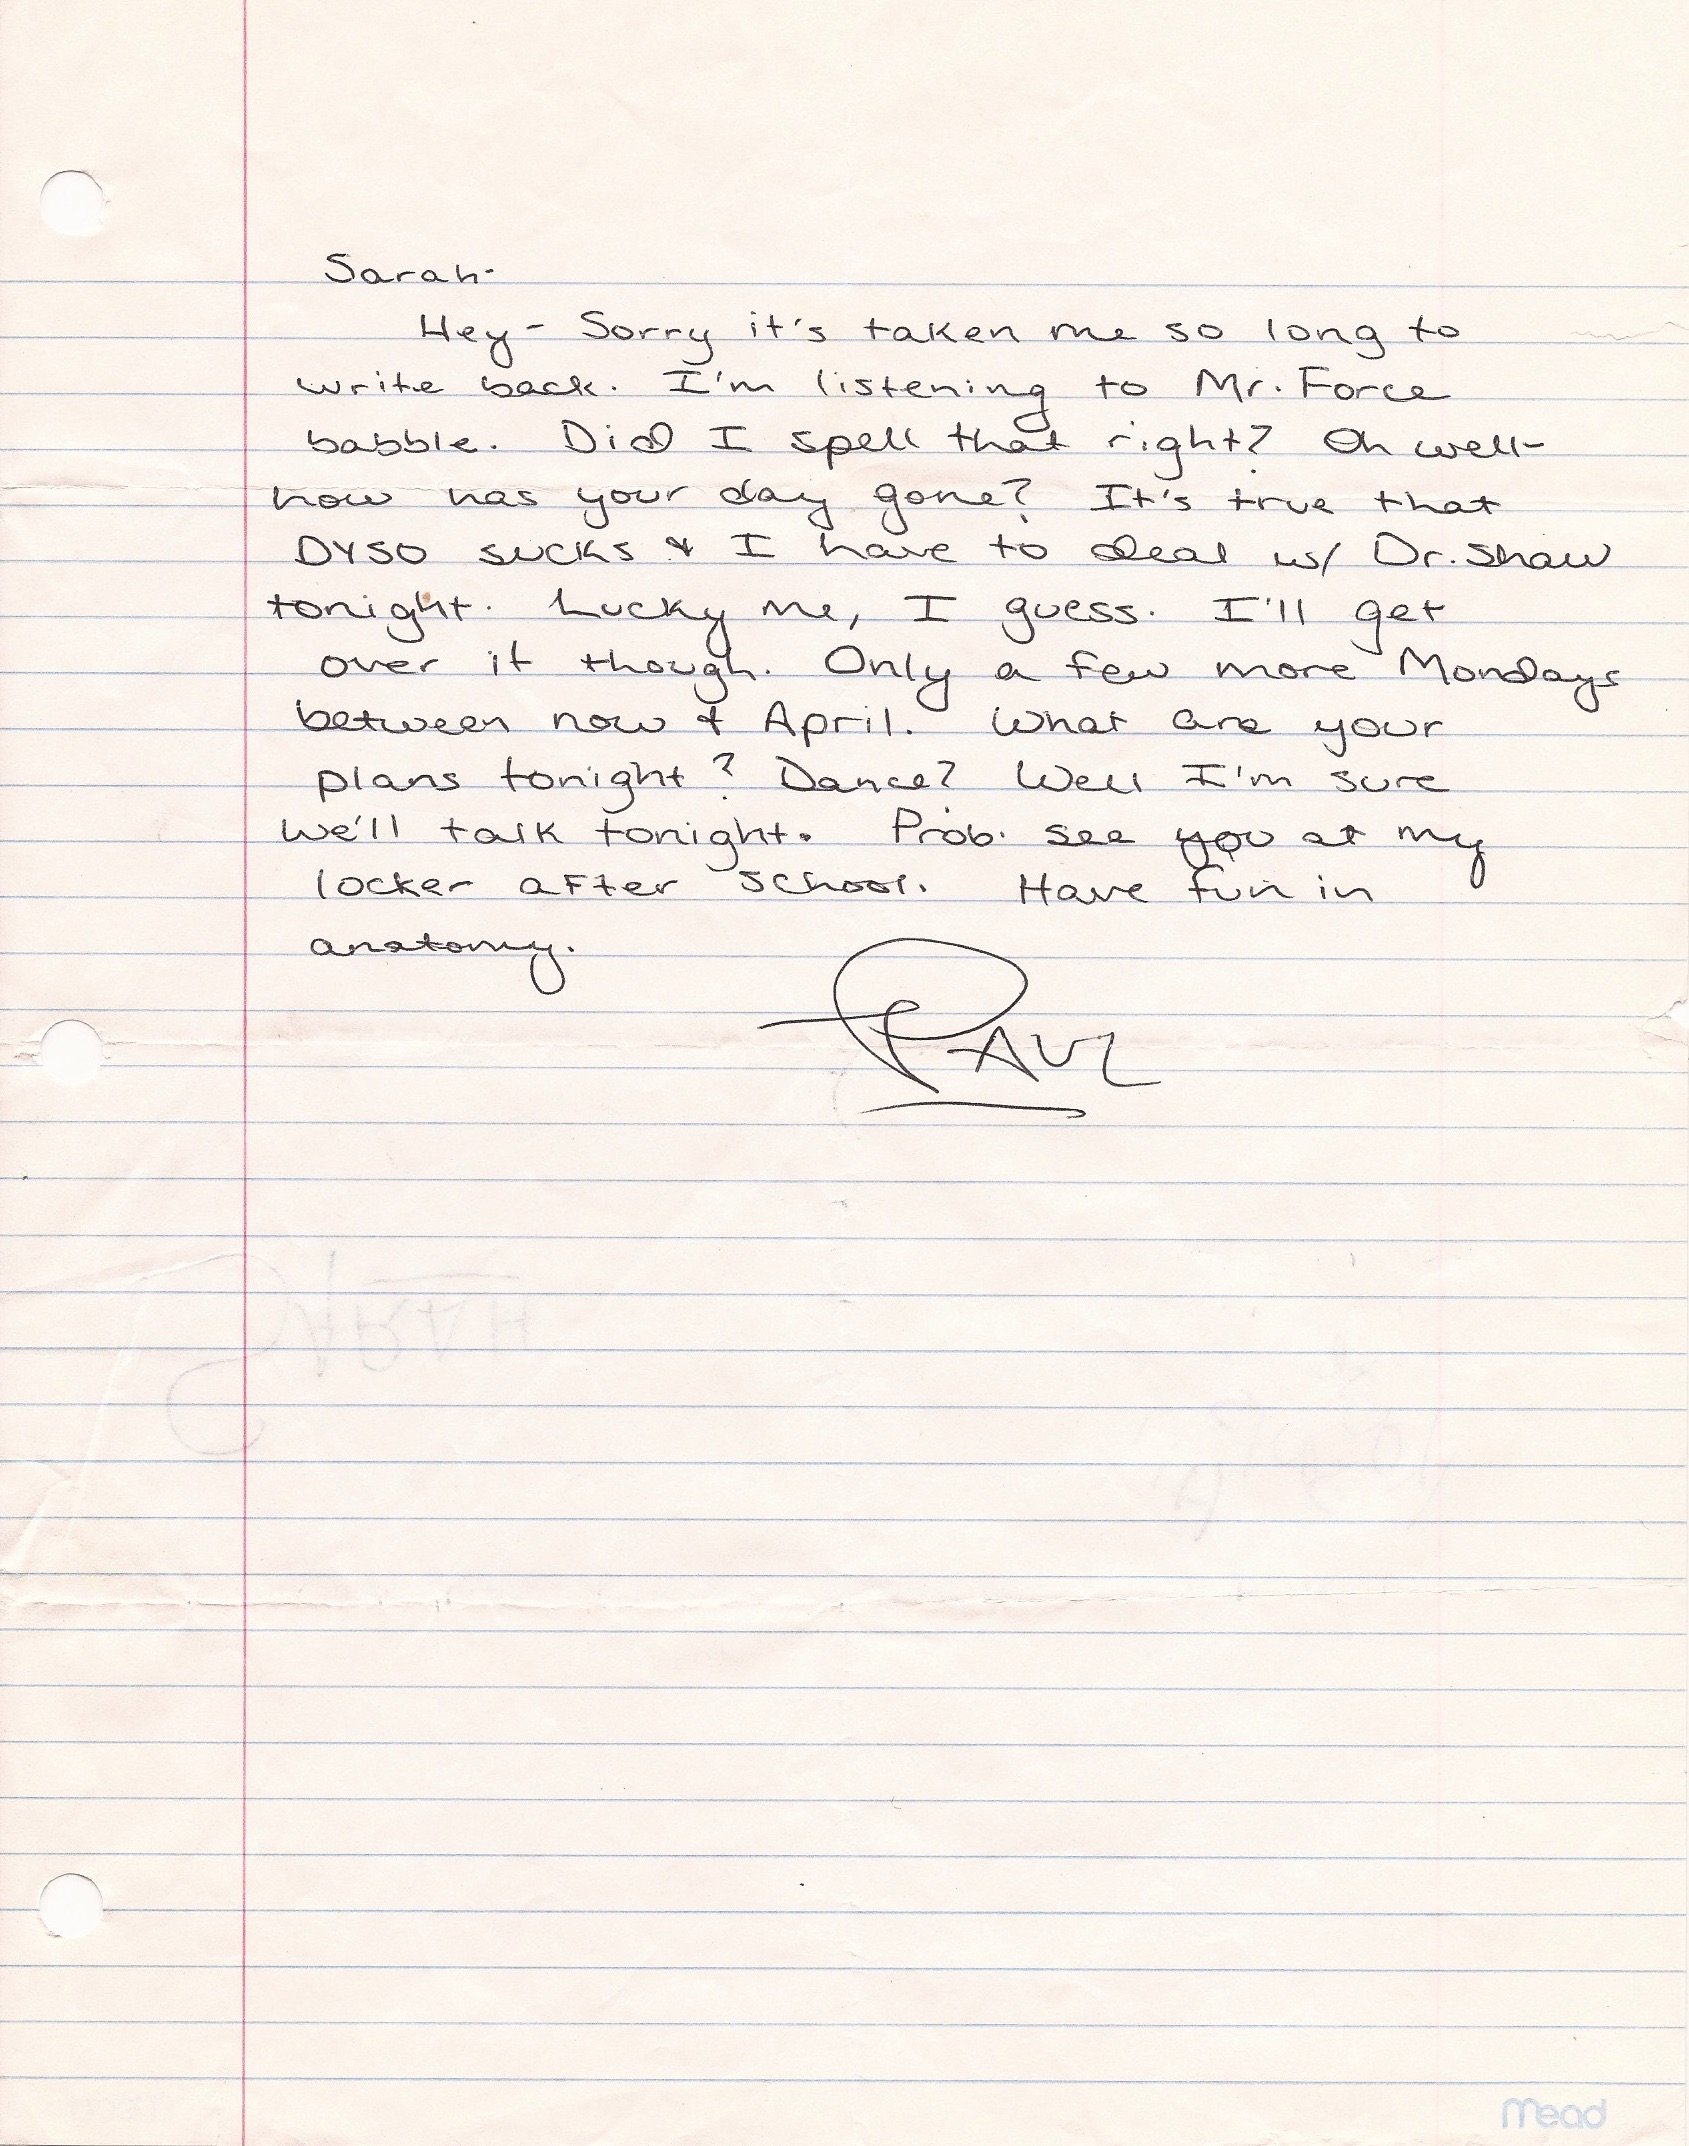 Sarah-
Hey - Sorry it's taken me so long to
write back. I'm listening to Mr. Force
babble. Did I spell that right? Oh well-
how has your day gone? It's true that
DYSO sucks & I have to deal w/ Dr. Shaw
tonight. Lucky me, I guess. I'll get
over it though. Only a few more Mondays
between now & April. What are your
plans tonight? Dance? Well I'm sure
we'll talk tonight. Prob. see you at my
locker after school. Have fun in
anatomy.
PAUL
SARAH
Mead